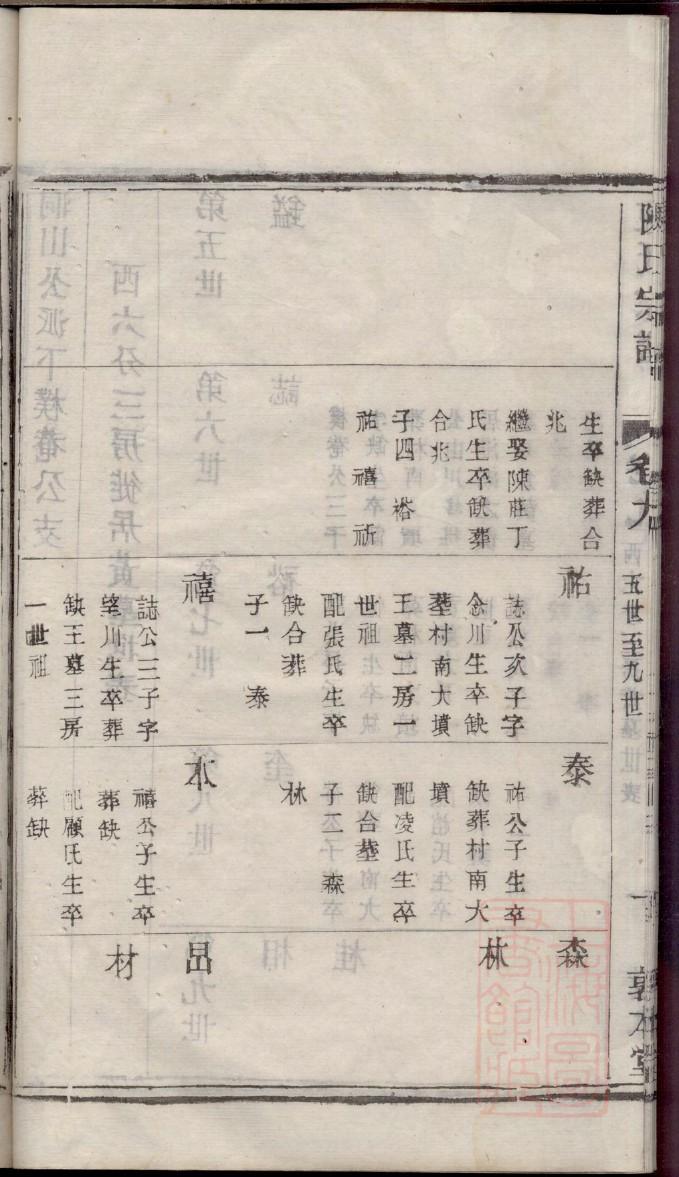 陳氏宗譜
卷九
五世至九世
敦本堂
生卒缺葬合
兆
繼娶陳莊丁
氏生卒缺葬
合兆
子四 裕
祐 禧 祈
祐
誌公次子字
念川生卒缺
塟村南大墳
王墓二房一
世祖
配張氏生卒
缺合葬
子一 泰
禧
誌公三子字
望川生卒葬
缺王墓三房
一世祖
泰
祐公子生卒
缺葬村南大
墳
配凌氏生卒
缺合塟
子二 森
林
本
禧公子生卒
葬缺
配顧氏生卒
葬缺
森
林
材